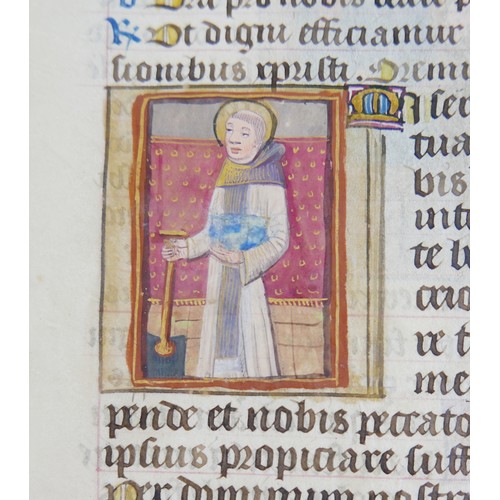 Ora pro nobis
Ut digni efficiamur
sionibus xpristi. Oremu
Miser
tua
bis
uite
te b
crio
re t
me
pende et nobis peccato
ipsius propiciare suff
Per dominum nostr